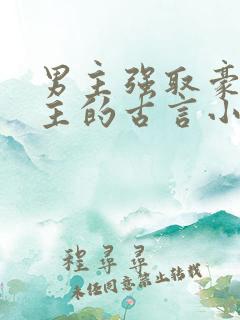 男主强取豪
主的古言小
程寻寻
未经同意禁止转载